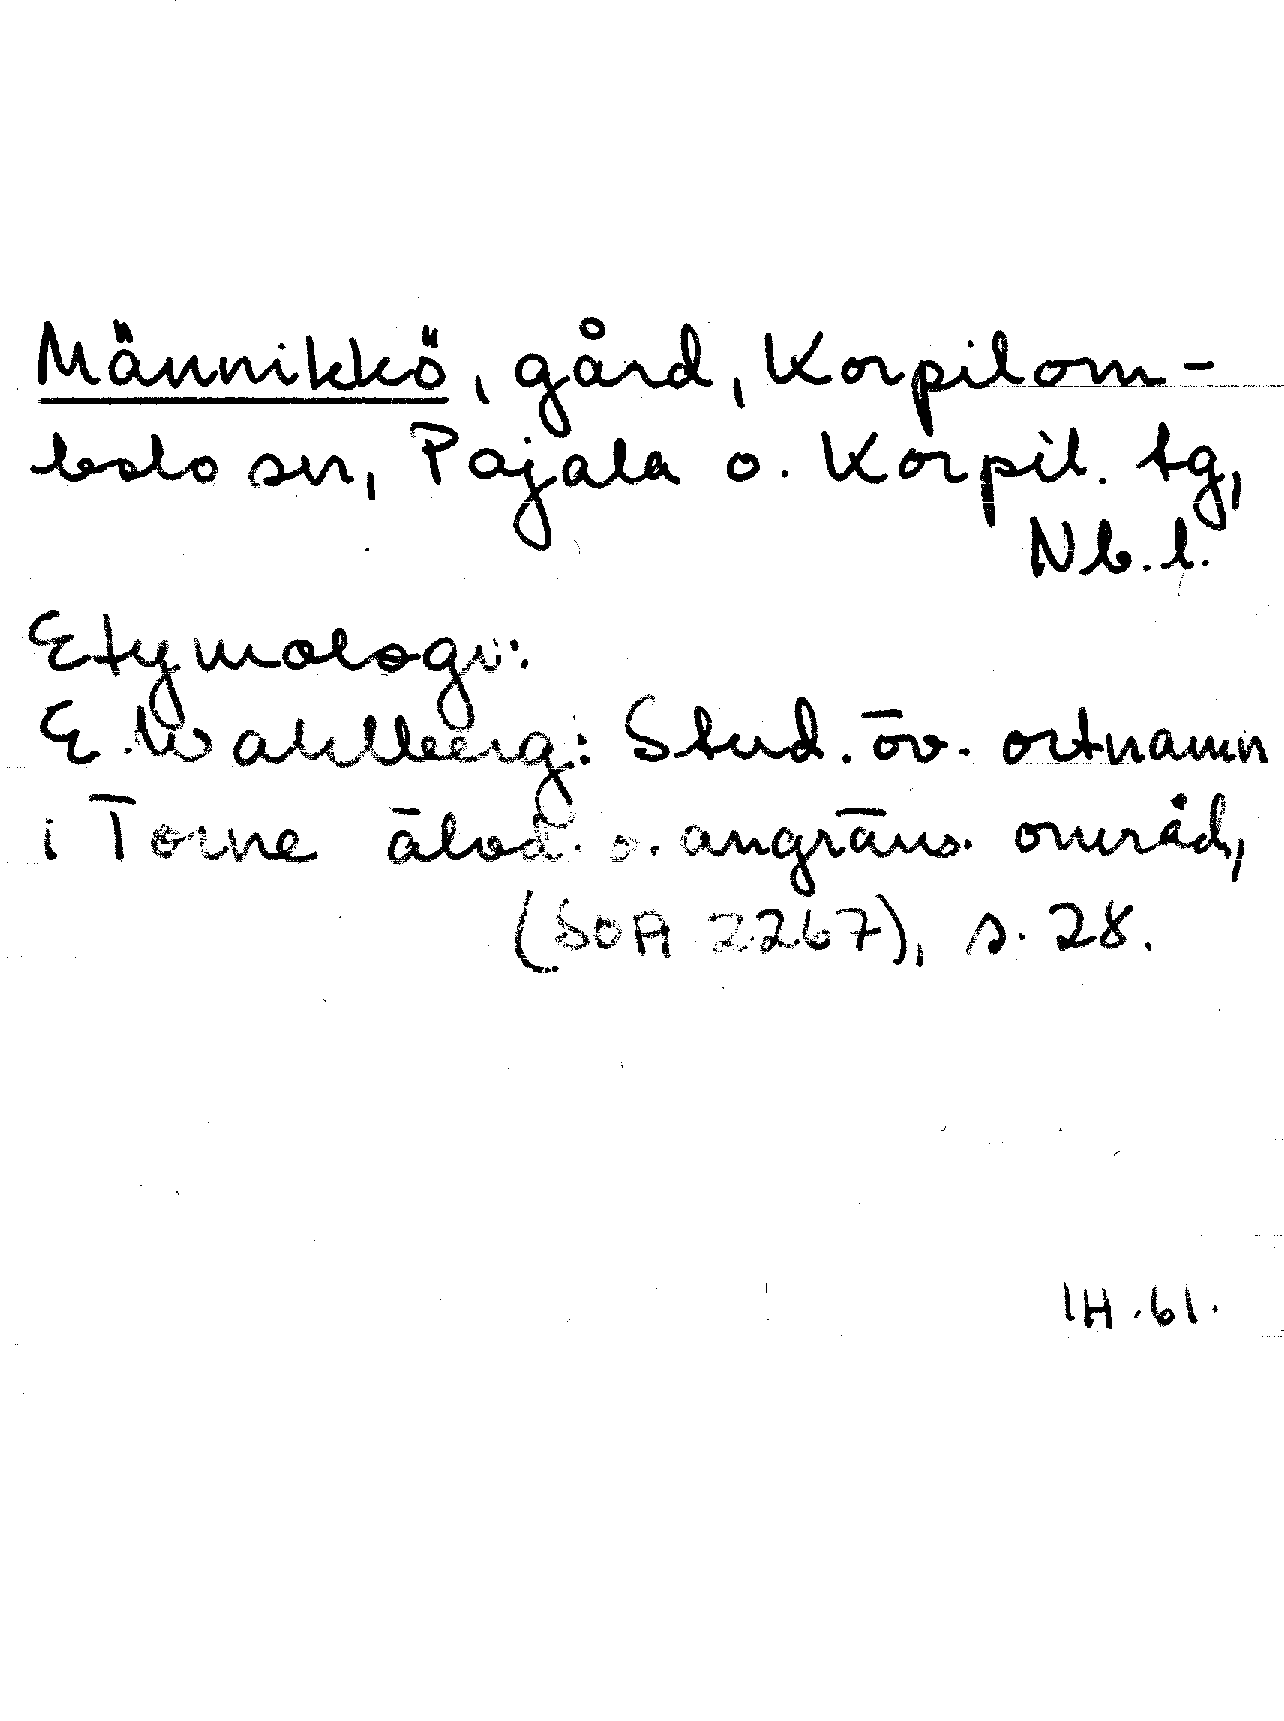 Männikkö, gård, Korpilom-
bolo sn, Pajala o. Korpil. tg,
Nb.l.
Etymologi:
E. Wahlberg: Stud. öv. ortnamn
i Torne älvd. o. angräns. områd,
(SOA 2267), s. 28.
IH.61.